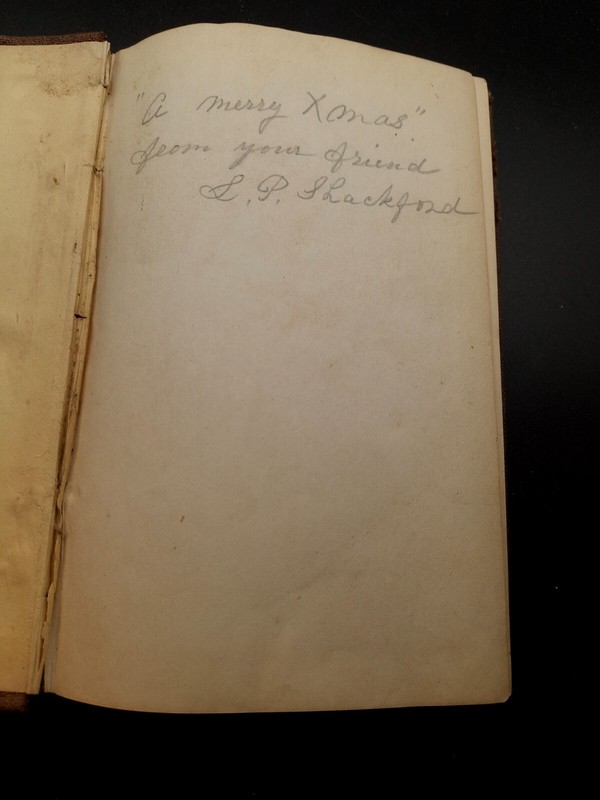 "A merry Xmas".
from your friend
S. P. Shackford